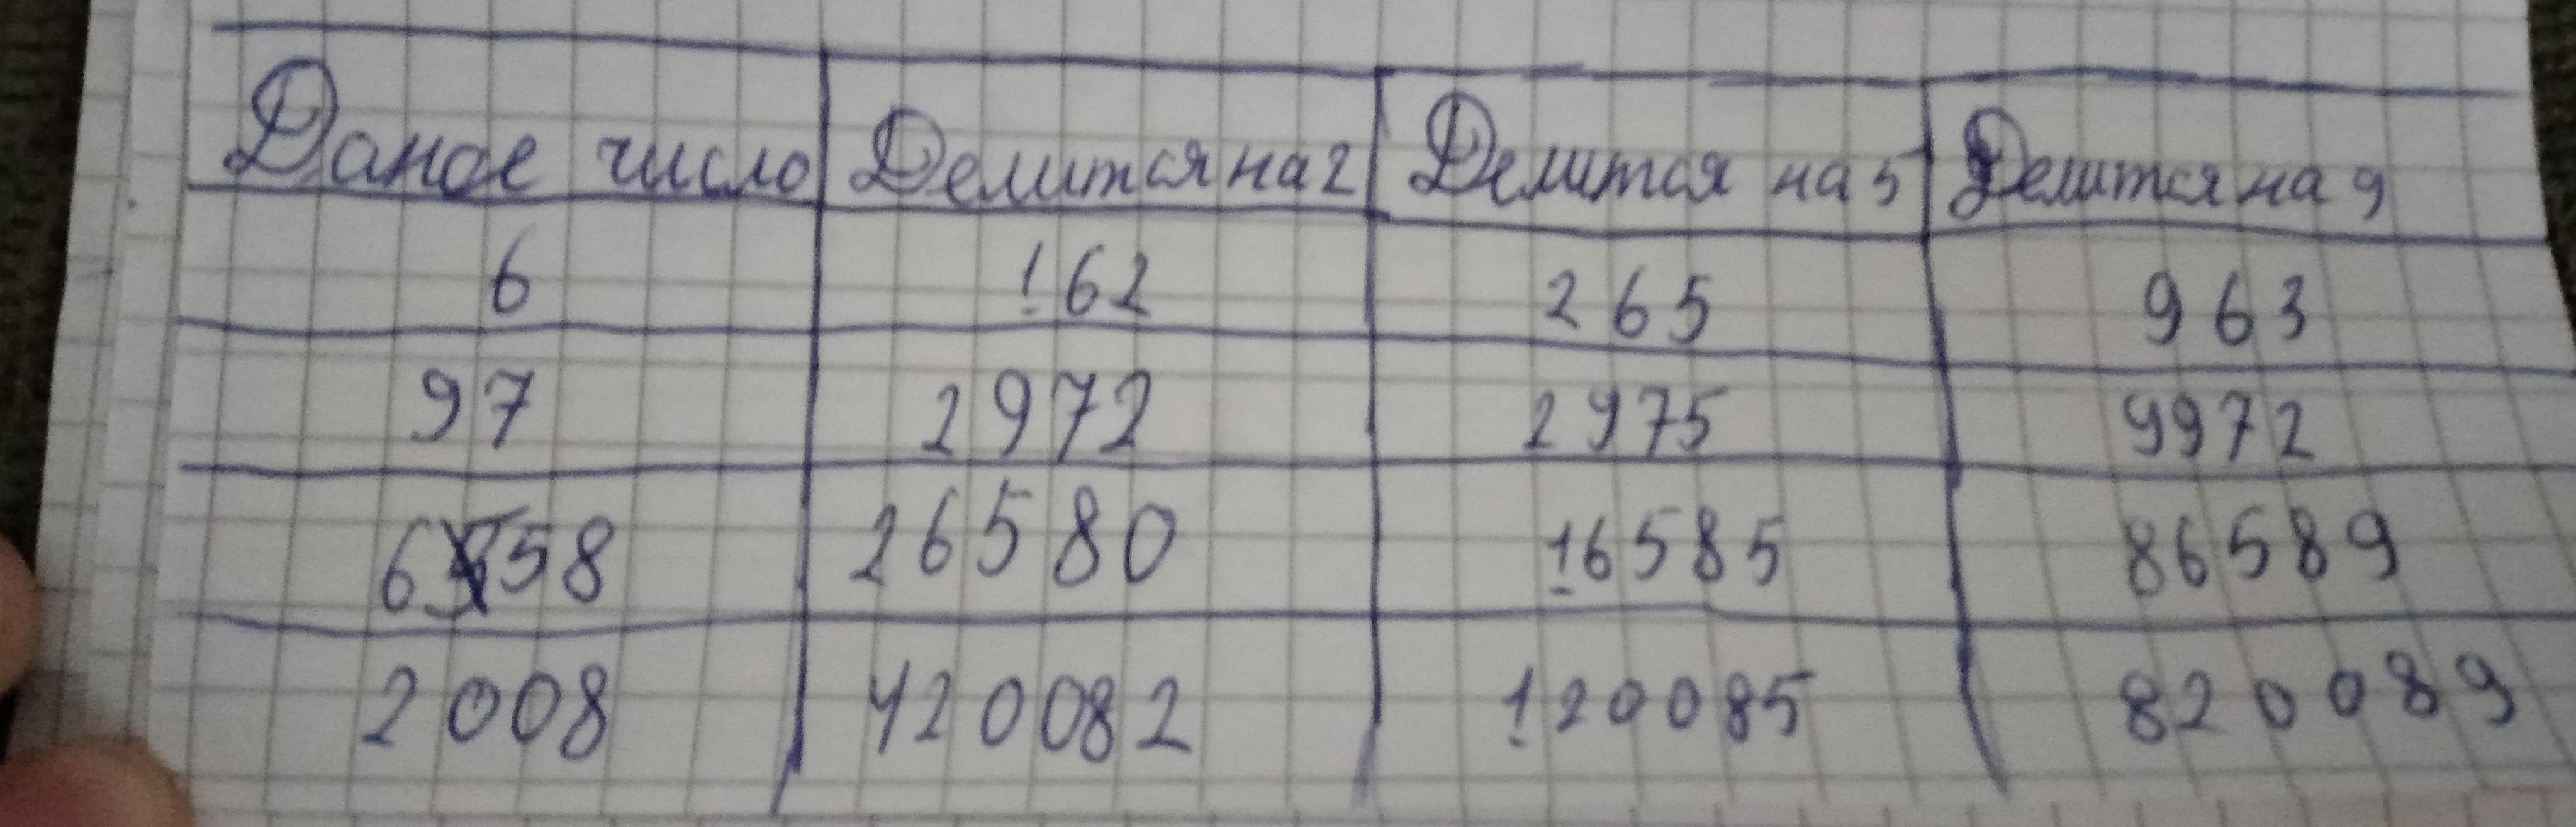 Даное число Делится на 2 Делится на 5 Делится на 9
6 162 265 963
97 2972 2975 9972
658 26580 16585 86589
2008 120082 120085 820089